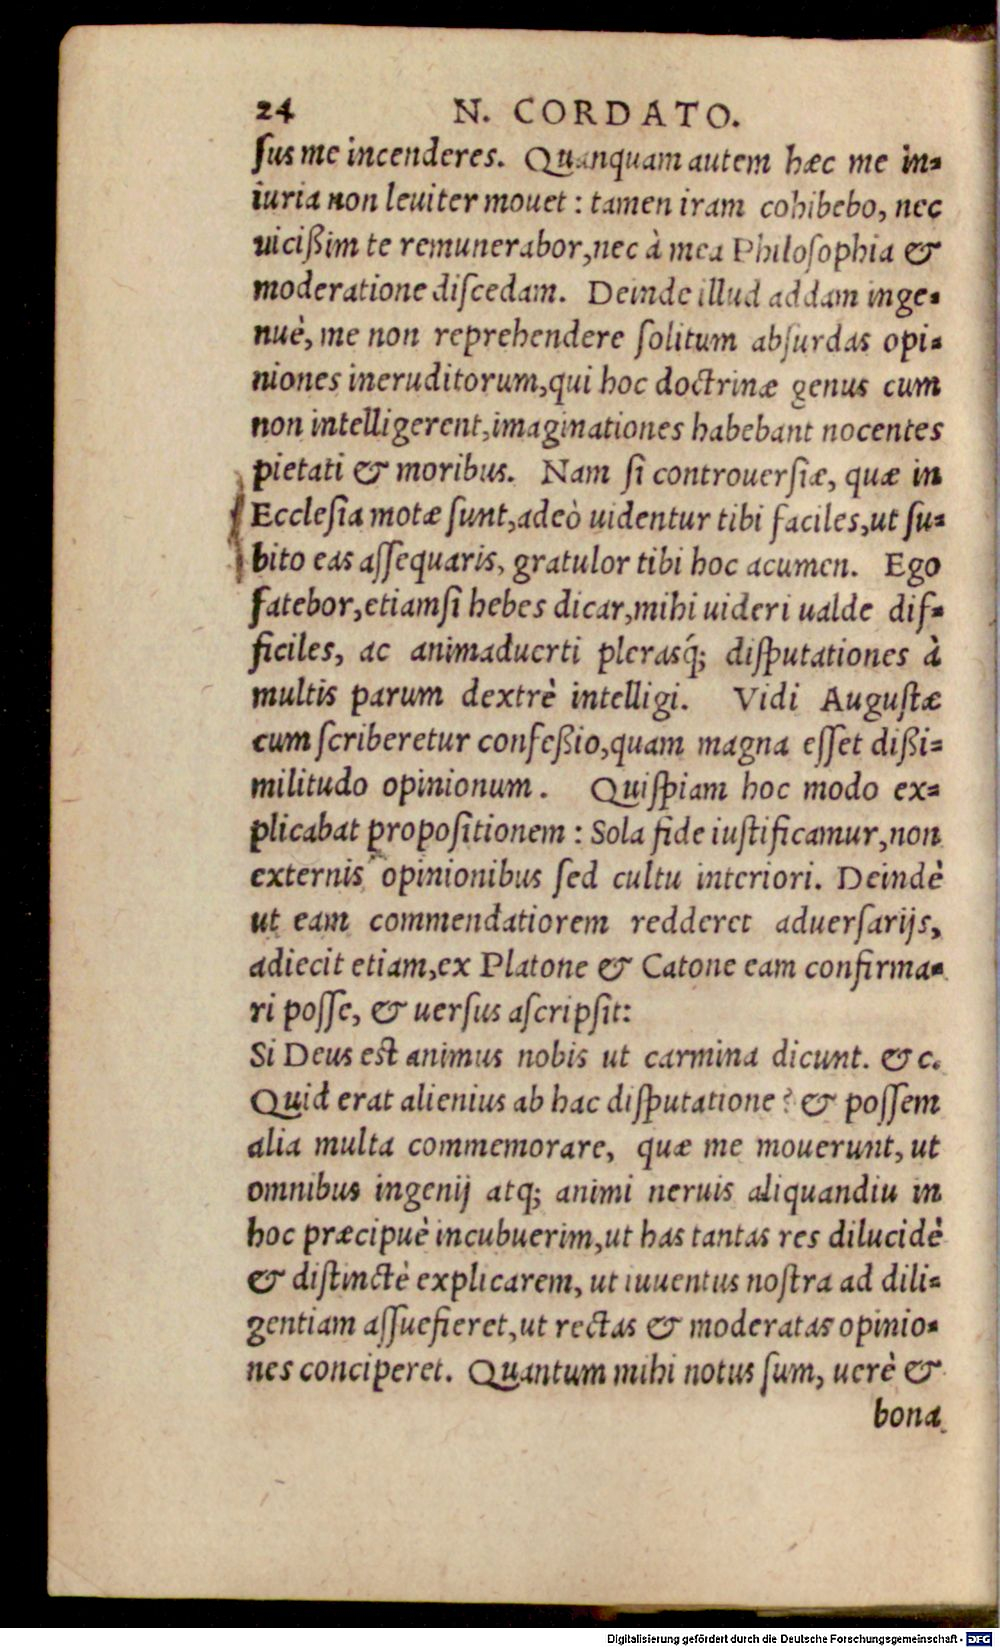 24 N. CORDATO.
ſus me incenderes. Quanquam autem hæc me in⸗
iuria non leuiter mouet : tamen iram cohibebo, nec
uicißim te remunerabor, nec à mea Philoſophia &
moderatione diſcedam. Deinde illud addam inge⸗
nuè, me non reprehendere ſolitum abſurdas opi⸗
niones ineruditorum, qui hoc doctrinæ genus cum
non intelligerent, imaginationes habebant nocentes
pietati & moribus. Nam ſi controuerſiæ, quæ in
Eccleſia motæ ſunt, adeò uidentur tibi faciles, ut ſu⸗
bito eas aſſequaris, gratulor tibi hoc acumen. Ego
fatebor, etiamſi hebes dicar, mihi uideri ualde dif⸗
ficiles, ac animaduerti plerasq́; diſputationes à
multis parum dextrè intelligi. Vidi Auguſtæ
cum ſcriberetur confeßio, quam magna eſſet dißi⸗
militudo opinionum. Quiſpiam hoc modo ex⸗
plicabat propoſitionem : Sola fide iuſtificamur, non
externis opinionibus ſed cultu interiori. Deindè
ut eam commendatiorem redderet aduerſarijs,
adiecit etiam, ex Platone & Catone eam confirma⸗
ri poſſe, & uerſus aſcripſit:
Si Deus est animus nobis ut carmina dicunt. & c.
Quid erat alienius ab hac diſputatione ? & poſſem
alia multa commemorare, quæ me mouerunt, ut
omnibus ingenij atq; animi neruis aliquandiu in
hoc præcipuè incubuerim, ut has tantas res dilucidè
& diſtinctè explicarem, ut iuuentus noſtra ad dili⸗
gentiam aſſuefieret, ut rectas & moderatas opinio⸗
nes conciperet. Quantum mihi notus ſum, uerè &
bona
Digitalisierung gefördert durch die Deutsche Forschungsgemeinschaft - DFG